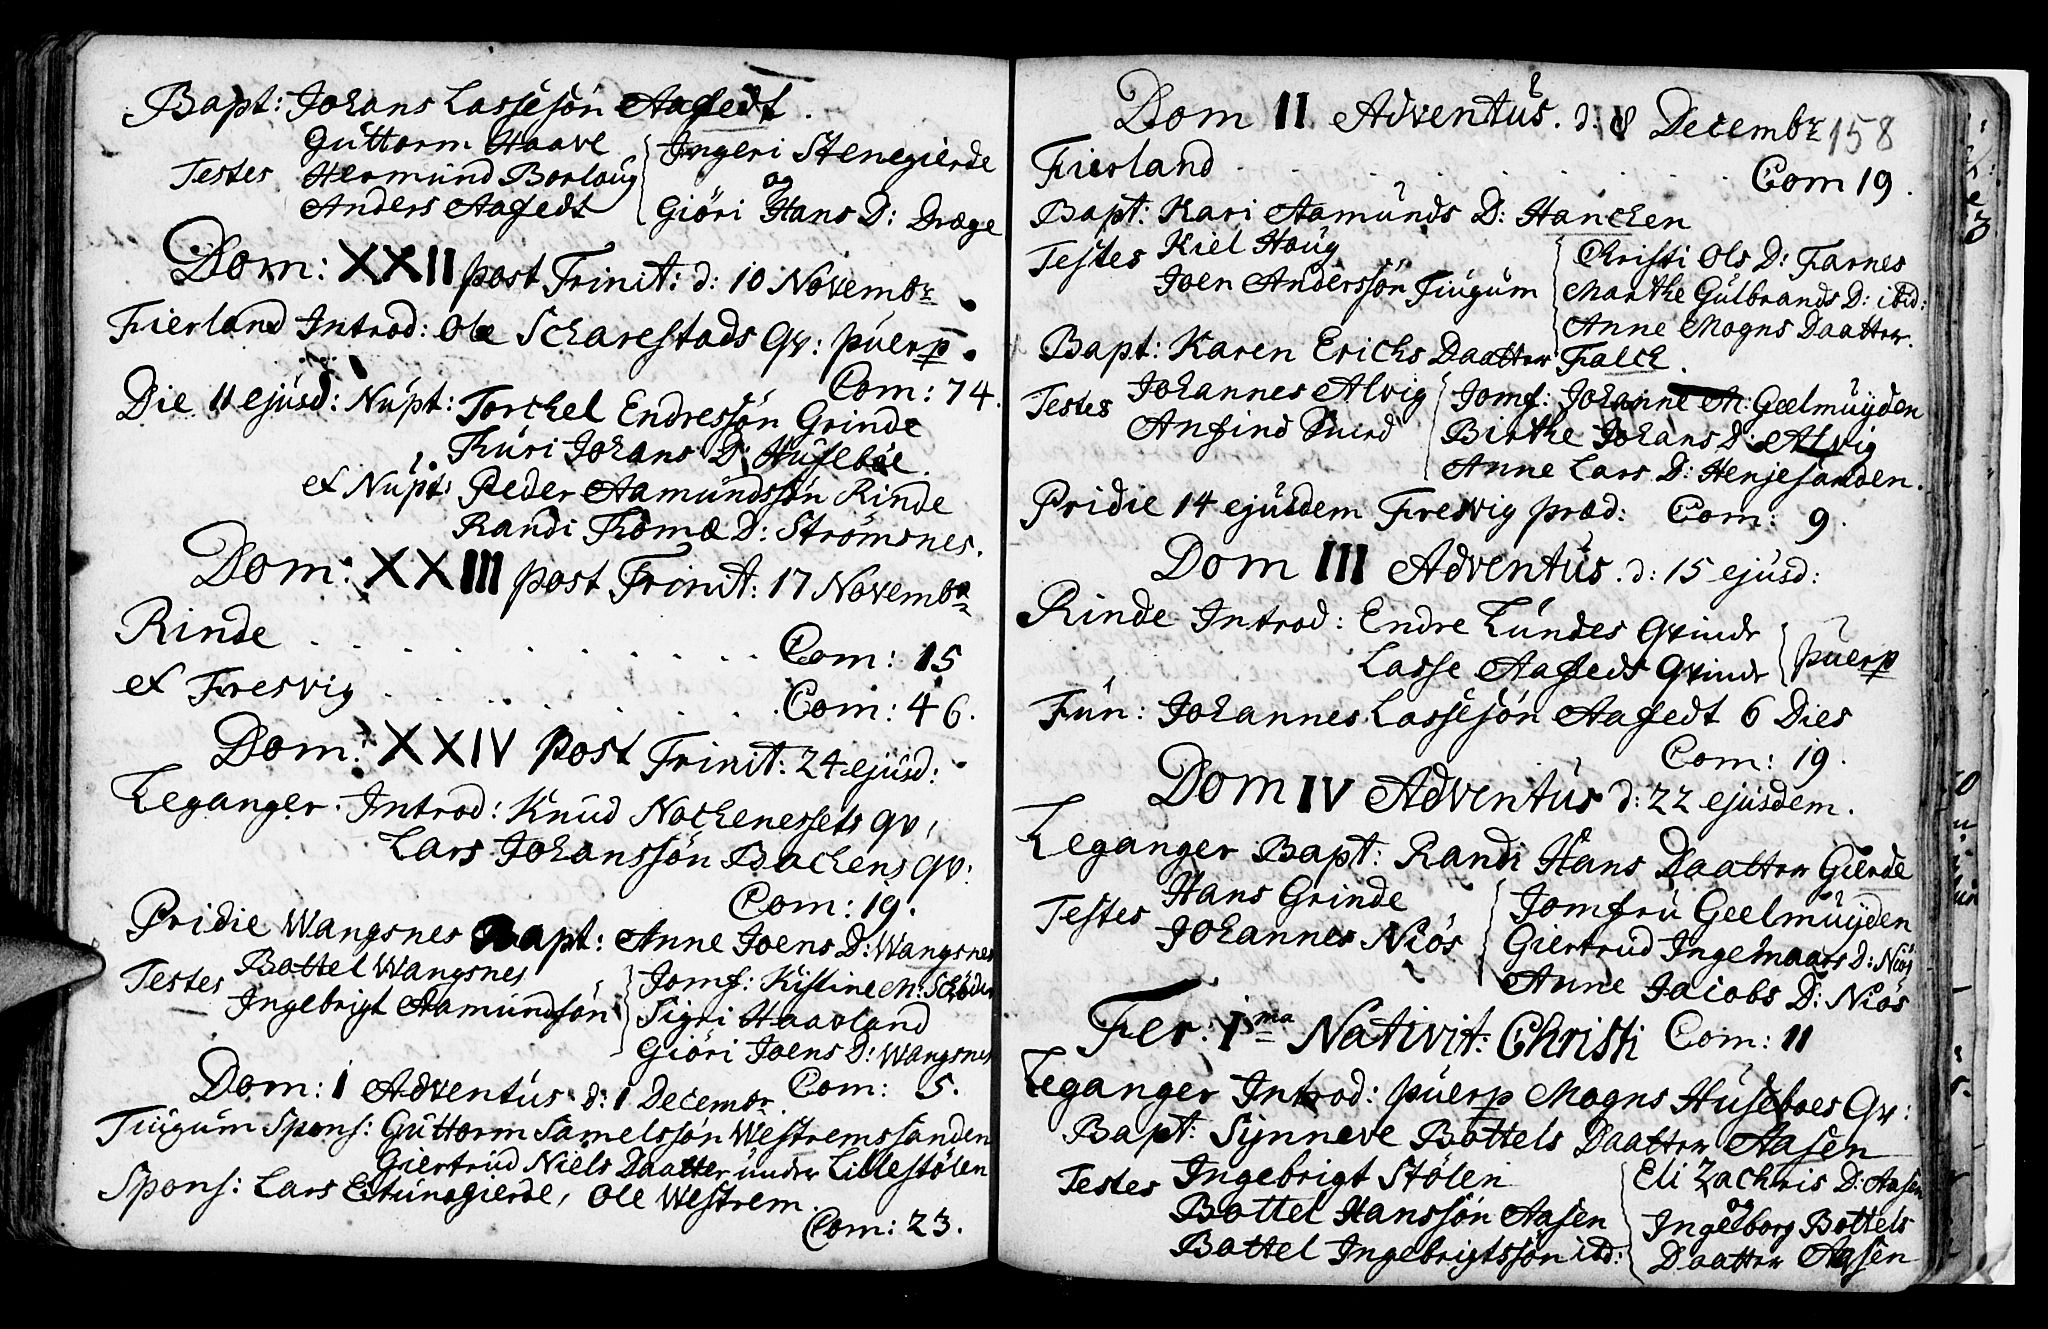 Bapt: Johans Lassesön Aafedt.
Guttorm Haave
Testes Hermund Borlaug
Anders Aafedt
Ingeri Stenegierde
og
Giöri Hans D: Dræge
Dom: XXII post Trinit: d: 10 Novembr
Fierland Introd: Ole Scharestads Qv: puerp.
Com: 74.
Die 11 ejusd: Nupt: Torchel Endressön Grinde
Thuri Johans D: Huseböe.
et Nupt: Peder Aamundssön Rinde
Randi Thomæ D: Strömsnes.
Dom: XXIII post Trinit: 17 Novembr
Rinde . . . . . . . . . . Com: 15
et Fresvig . . . . . . . . . Com: 46.
Dom: XXIV post Trinit: 24 ejusd:
Leganger. Introd: Knud Nochenessets qv,
Lars Johanssön Bachens qv:
Com: 19.
Pridie Wangsnes Bapt: Anne Joens D: Wangsnes
Testes Battel Wangsnes
Ingebrigt Aamundsön
Jomf: Kistine M: Schöder
Sigri Haavland
Giöri Joens D: Wangsnes
Com: 5.
Dom: I Adventus d: 1 Decembr
Tiugum Spons: Guttorm Samelssön Westremssanden
Giertrud Niels Daatter under Lillestölen
Spons: Lars Eitunsgierde, Ole Westrem.
Com: 23.
158
Dom II Adventus. d: 8 Decembr
Fierland . . . . . . . . . Com 19.
Bapt: Kari Aamunds D: Hanchen
Testes Kiel Haug
Joen Anderssön Tiugum
Christi Ols D: Farnes
Marthe Gulbrands D: ibid:
Anne Mogns Daatter.
Bapt: Karen Erichs Daatter Falch.
Testes Johannes Alvig
Anfind Suerd
Jomf: Johanne M: Geelmuyden
Birthe Johans D: Alvig
Anne Lars D: Henjesanden.
Pridie 14 ejusdem Fresvig præd: Com: 9.
Dom III Adventus. d: 15 ejusd:
Rinde Introd: Endre Lundes Qvinde
Lasse Aafedts Qvinde
puerp
Fun: Johannes Lassesön Aafedt 6 Dies
Com: 19.
Dom IV Adventus d: 22 ejusdem.
Leganger Bapt: Randi Hans Daatter Gierde
Testes Hans Grinde
Johannes Niös
Jomfru Geelmuyden
Giertrud Ingelmaars D: Niös
Anne Jacobs D: Niös
Fer: 1ma Nativit: Christi Com: 11
Leganger Introd: puerp Mogns Huseboes Qv:
Bapt: Synneve Bottels Daatter Aasen
Testes Ingebrigt Stölen
Bottel Hanssön Aasen
Battel Ingebrigtssön ibd:
Eli Zachris D: Aasen
og
Ingeborg Bottels
Daatter Aasen